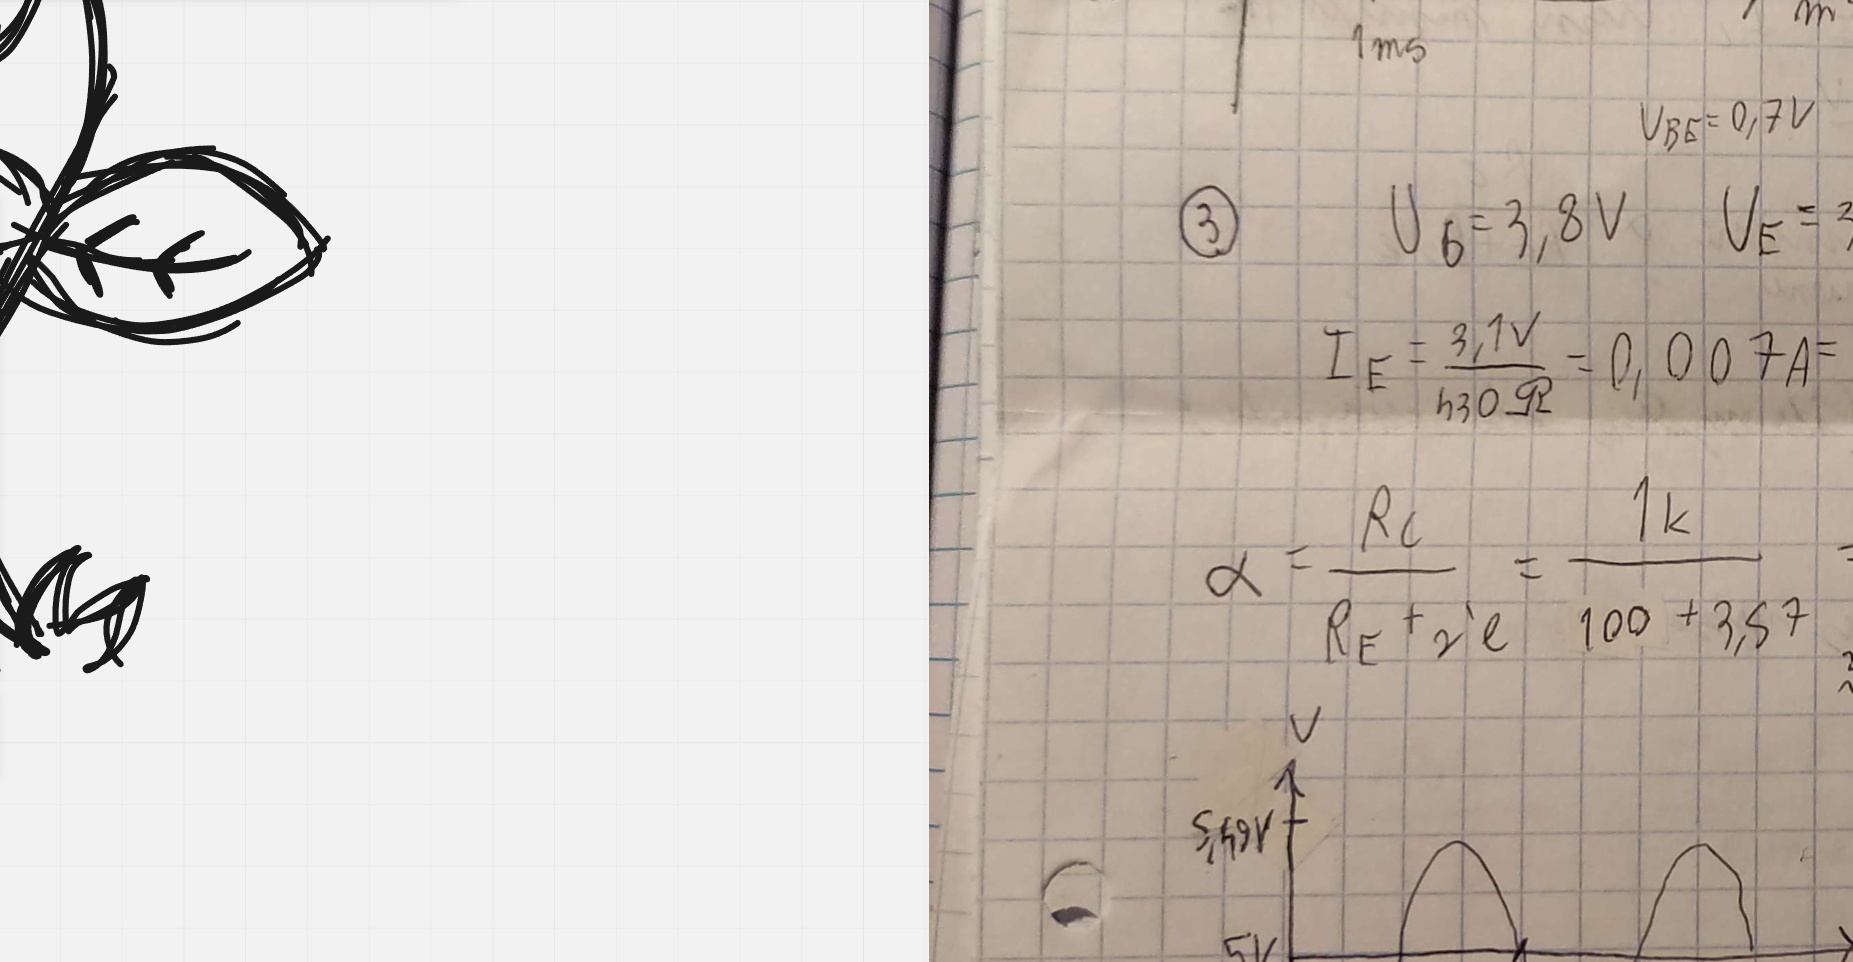 1ms
m
U_BE = 0,7V
③ U_B = 3,8V U_E = 3
I_E = 3,1V / 430Ω = 0,007A =
α = R_C / (R_E + r'e) = 1k / (100 + 3,57) =
V
5,49V
5V